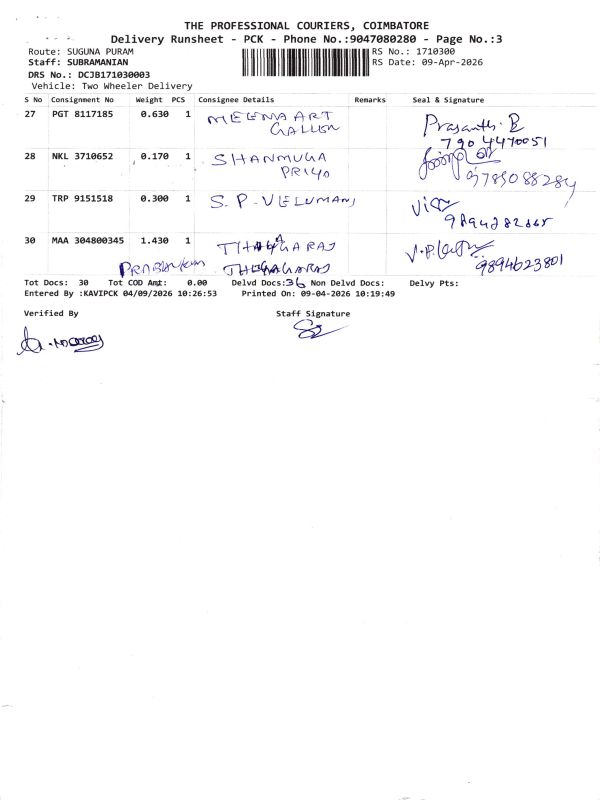 THE PROFESSIONAL COURIERS, COIMBATORE
Delivery Runsheet - PCK - Phone No.:9047080280 - Page No.:3
Route: SUGUNA PURAM RS No.: 1710300
Staff: SUBRAMANIAN RS Date: 09-Apr-2026
DRS No.: DCJB171030003
Vehicle: Two Wheeler Delivery
S No Consignment No Weight PCS Consignee Details Remarks Seal & Signature
27 PGT 8117185 0.630 1 MEENA ART Prasanth. B
7904470051
28 NKL 3710652 0.170 1 SHANMUGA
PRIYA 9789088284
29 TRP 9151518 0.300 1 S. P. VELUMANI
30 MAA 304800345 1.430 1 THIYAGARAJ
THIYAGARAJ 9894623801
Tot Docs: 30 Tot COD Amt: 0.00 Delvd Docs: Non Delvd Docs: Delvy Pts:
Entered By :KAVIPCK 04/09/2026 10:26:53 Printed On: 09-04-2026 10:19:49
Verified By Staff Signature